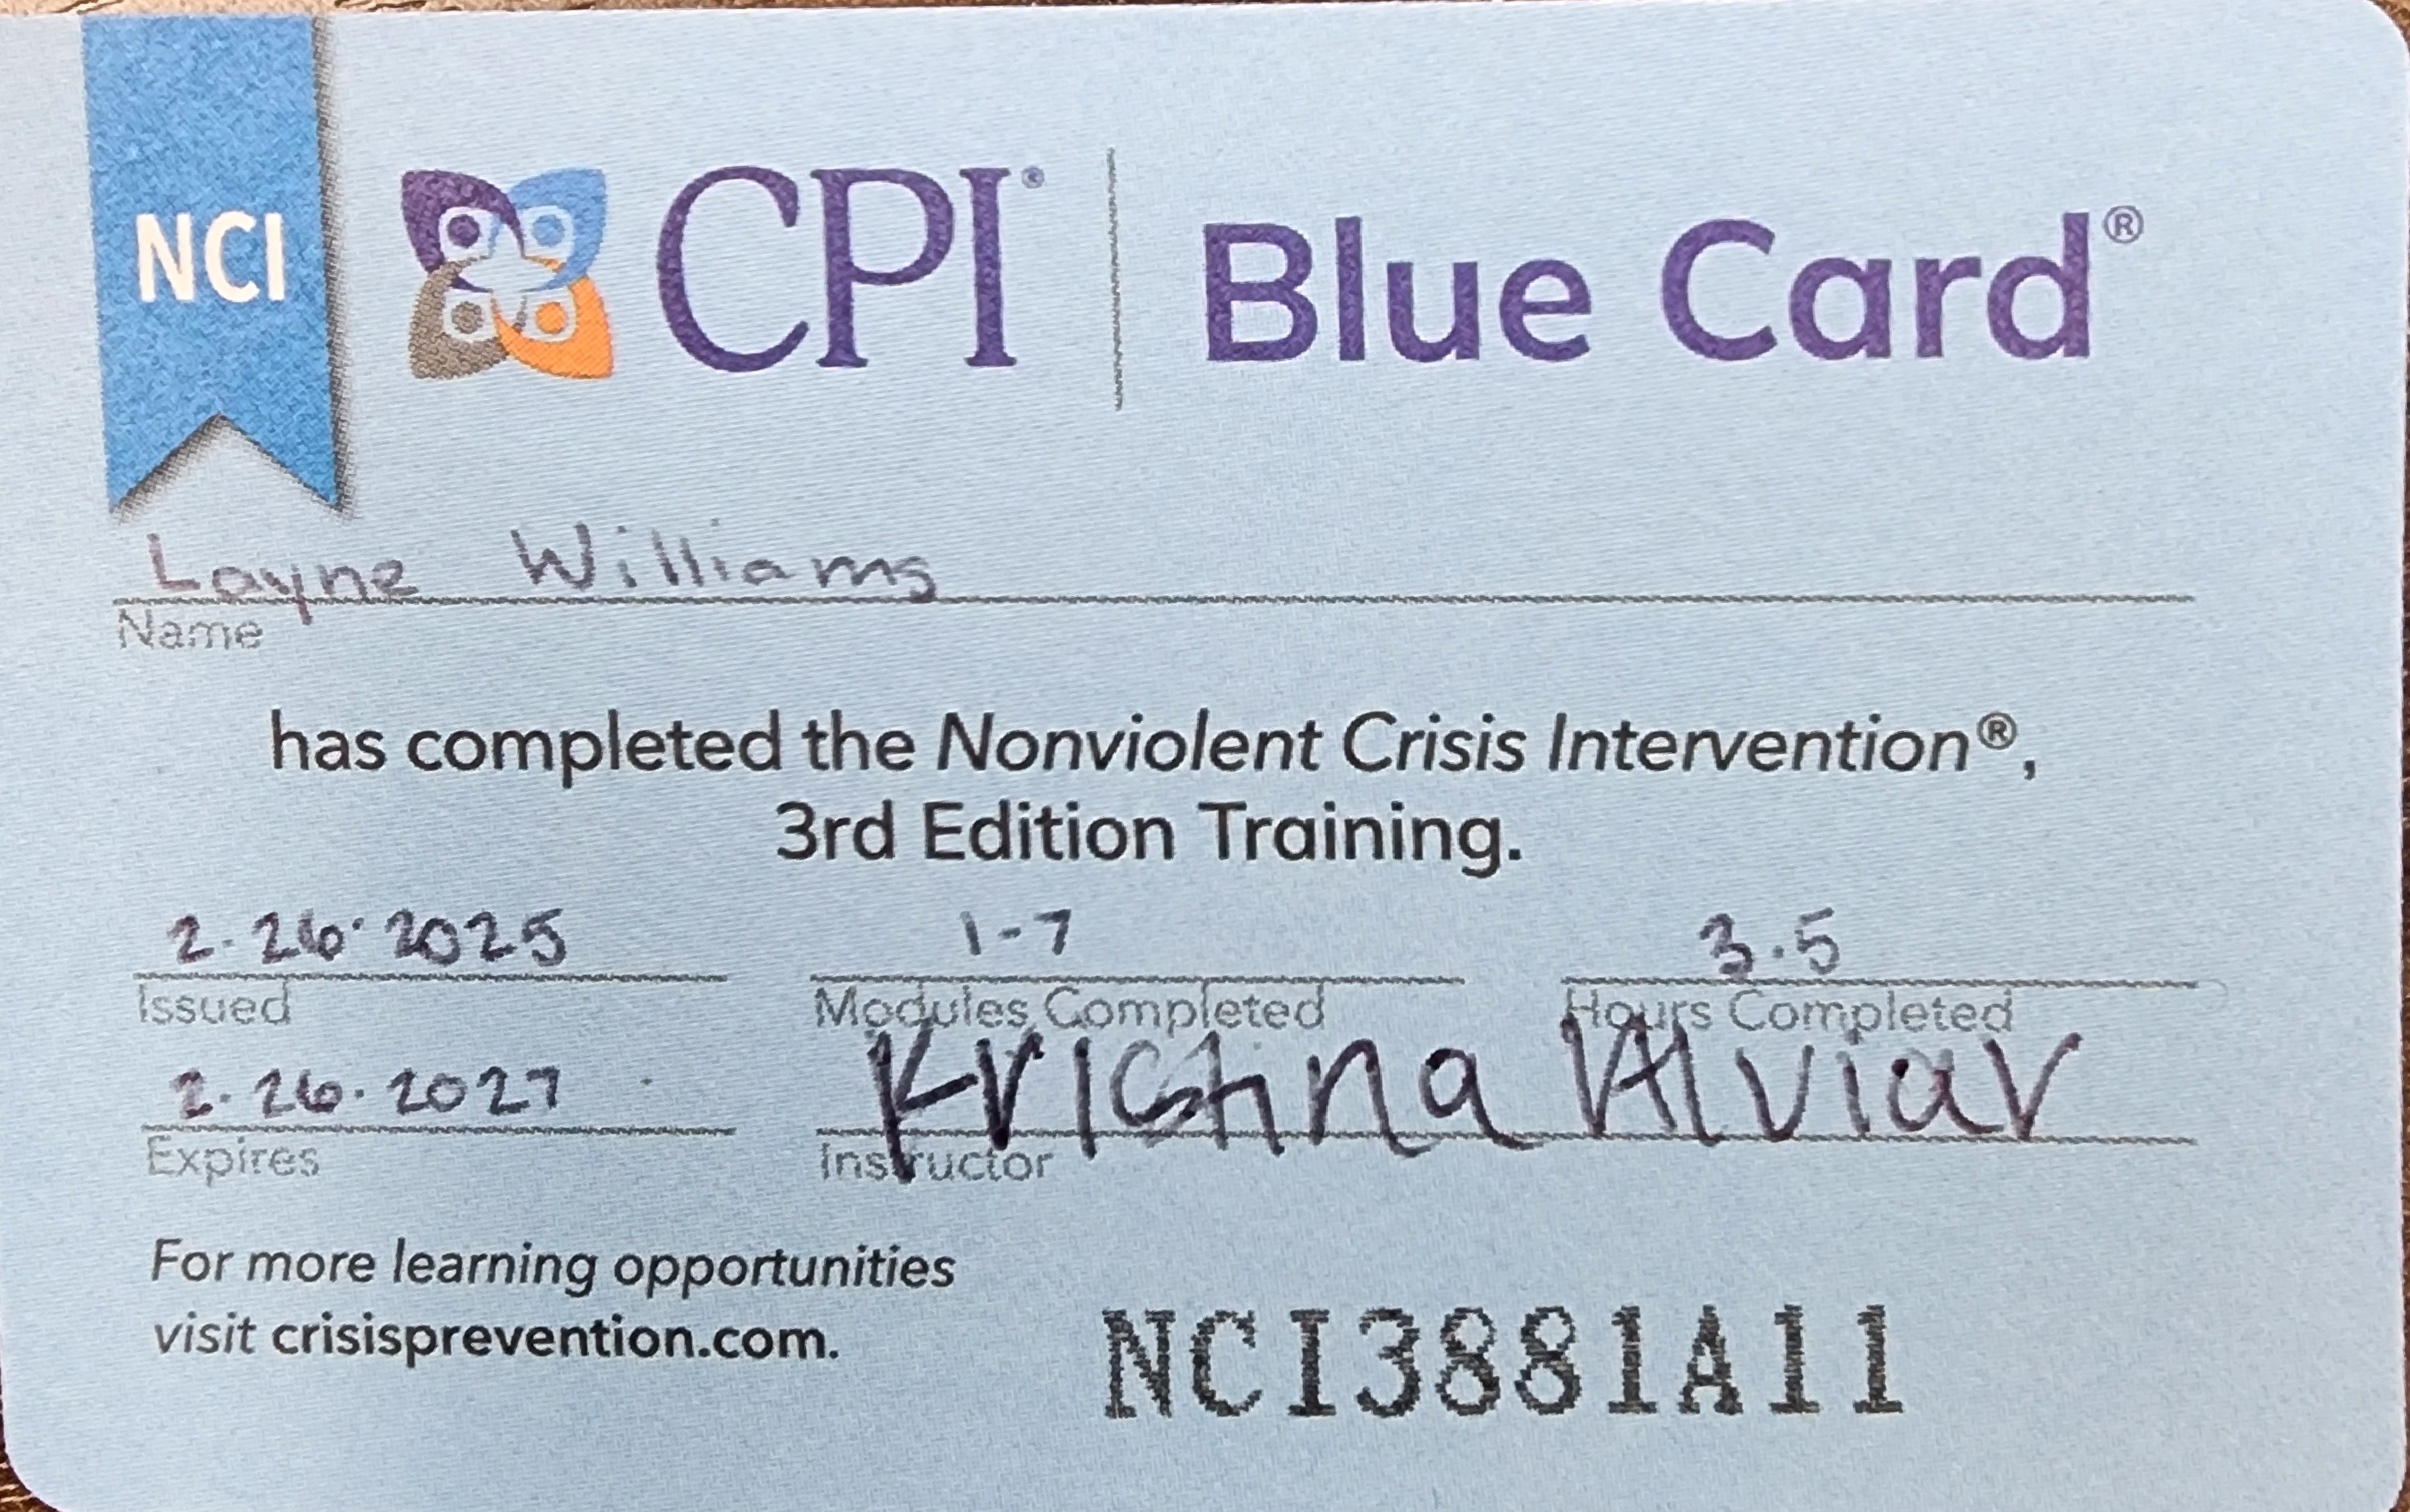 NCI
CPI® | Blue Card®
Layne Williams
Name
has completed the Nonviolent Crisis Intervention®,
3rd Edition Training.
2.26.2025 1-7 3.5
Issued Modules Completed Hours Completed
2.26.2027 Kristina Alviar
Expires Instructor
For more learning opportunities
visit crisisprevention.com.
NCI3881A11